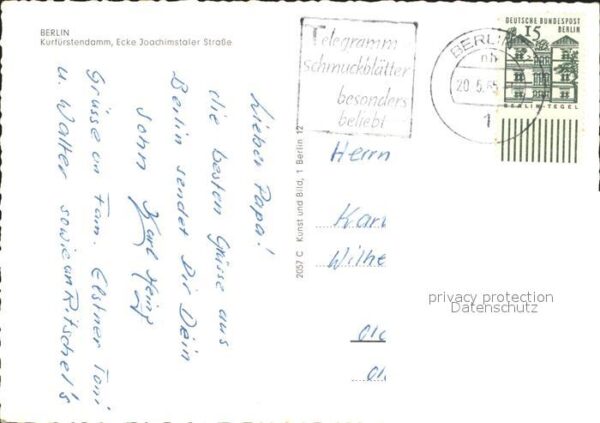 BERLIN
Kurfürstendamm, Ecke Joachimstaler Straße
Lieber Papa!
die besten Grüsse aus
Berlin sendet Dir Dein
Sohn Karl Heinz
Grüsse an Fam. Elstner Toni
u. Walter sowie an Ritschel's
2057 C Kunst und Bild, 1 Berlin 12
Telegramm
schmuckblätter
besonders
beliebt
BERLIN
nb
20.5.65
1
DEUTSCHE BUNDESPOST
15 BERLIN
BERLIN-TEGEL
Herrn
Karl
Wilhe
privacy protection
Datenschutz